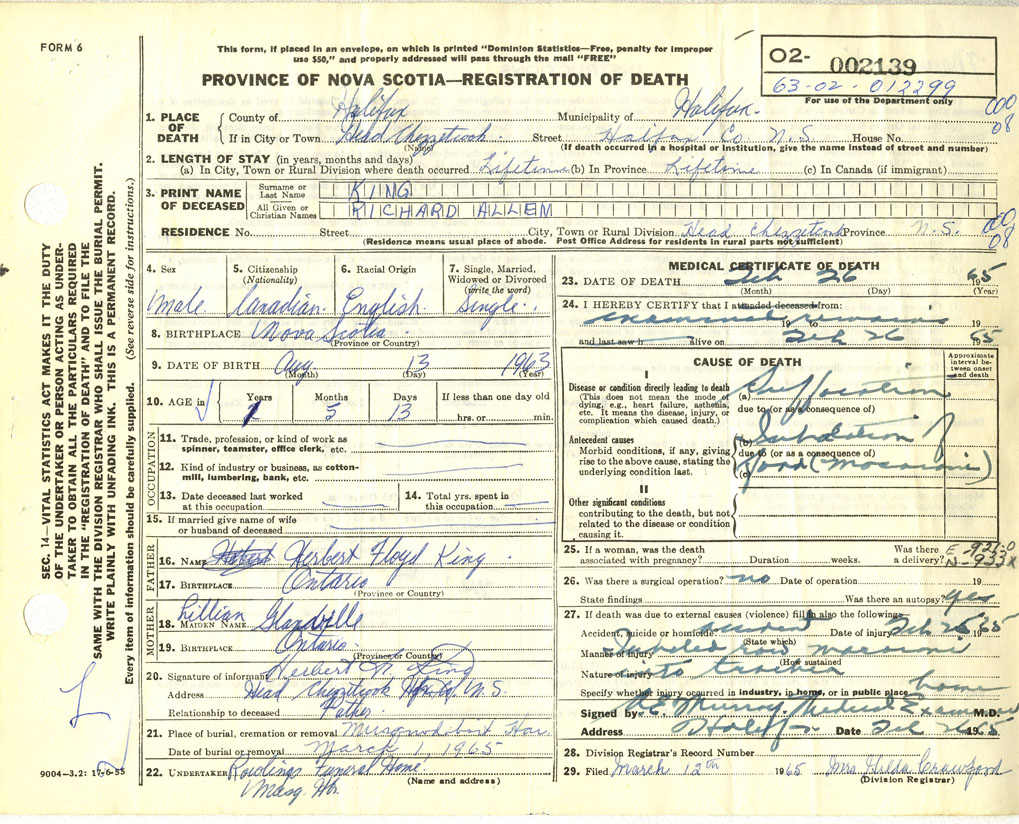 FORM 6
This form, if placed in an envelope, on which is printed "Dominion Statistics—Free, penalty for improper
use $50," and properly addressed will pass through the mail "FREE"
PROVINCE OF NOVA SCOTIA—REGISTRATION OF DEATH
O2- 002139
63-02-012299
For use of the Department only
000
08
1. PLACE OF DEATH
County of Halifax Municipality of Halifax
If in City or Town Head Chezzetcook Street Halifax Co. N.S. House No.
(Name) (If death occurred in a hospital or institution, give the name instead of street and number)
2. LENGTH OF STAY (in years, months and days)
(a) In City, Town or Rural Division where death occurred Lifetime (b) In Province Lifetime (c) In Canada (if immigrant)
3. PRINT NAME OF DECEASED
Surname or Last Name KING
All Given or Christian Names RICHARD ALLEN
000
08
RESIDENCE No. Street City, Town or Rural Division Head Chezzetcook Province N.S.
(Residence means usual place of abode. Post Office Address for residents in rural parts not sufficient)
4. Sex Male
5. Citizenship (Nationality) Canadian
6. Racial Origin English
7. Single, Married, Widowed or Divorced (write the word) Single
8. BIRTHPLACE Nova Scotia
(Province or Country)
9. DATE OF BIRTH Aug 13 1963
(Month) (Day) (Year)
10. AGE in Years 1 Months 5 Days 13 If less than one day old hrs. or min.
OCCUPATION
11. Trade, profession, or kind of work as
spinner, teamster, office clerk, etc.
12. Kind of industry or business, as cotton-
mill, lumbering, bank, etc.
13. Date deceased last worked
at this occupation
14. Total yrs. spent in
this occupation
15. If married give name of wife
or husband of deceased
FATHER
16. NAME Herbert Floyd King
17. BIRTHPLACE Ontario
(Province or Country)
MOTHER
18. MAIDEN NAME Lillian Glanville
19. BIRTHPLACE Ontario
(Province or Country)
20. Signature of informant Herbert King
Address Head Chezzetcook Hfx Co N.S.
Relationship to deceased Father
21. Place of burial, cremation or removal Musquodoboit Har
Date of burial or removal March 1, 1965
22. UNDERTAKER Rowlings Funeral Home
Musq. Hbr.
(Name and address)
MEDICAL CERTIFICATE OF DEATH
23. DATE OF DEATH Feb 26 1965
(Month) (Day) (Year)
24. I HEREBY CERTIFY that I attended deceased from:
examined remains
19 to 19
and last saw h alive on Feb 26 1965
CAUSE OF DEATH
Approximate interval between onset and death
I
Disease or condition directly leading to death
(This does not mean the mode of
dying, e.g., heart failure, asthenia,
etc. It means the disease, injury, or
complication which caused death.)
(a) Suffocation
due to (or as a consequence of)
Antecedent causes
Morbid conditions, if any, giving
rise to the above cause, stating the
underlying condition last.
(b) Inhalation of
due to (or as a consequence of)
(c) food (macaroni)
II
Other significant conditions
contributing to the death, but not
related to the disease or condition
causing it.
25. If a woman, was the death
associated with pregnancy? Duration weeks. Was there a delivery?
E-921-0
N-933X
26. Was there a surgical operation? no Date of operation 19
State findings Was there an autopsy? yes
27. If death was due to external causes (violence) fill in also the following:
Accident, suicide or homicide accident Date of injury Feb 26 1965
(State which)
Manner of injury Inhaled raw macaroni
(How sustained
Nature of injury into trachea
Specify whether injury occurred in industry, in home, or in public place home
Signed by R.E. Murray Medical Examiner M.D.
Address Halifax Date Feb 26 1965
28. Division Registrar's Record Number
29. Filed March 12th 1965 Mrs Hilda Crawford
(Division Registrar)
SEC. 14—VITAL STATISTICS ACT MAKES IT THE DUTY
OF THE UNDERTAKER OR PERSON ACTING AS UNDER-
TAKER TO OBTAIN ALL THE PARTICULARS REQUIRED
IN THE "REGISTRATION OF DEATH" AND TO FILE THE
SAME WITH THE DIVISION REGISTRAR WHO SHALL ISSUE THE BURIAL PERMIT.
WRITE PLAINLY WITH UNFADING INK. THIS IS A PERMANENT RECORD.
Every item of information should be carefully supplied. (See reverse side for instructions.)
9004—3.2: 17-6-55